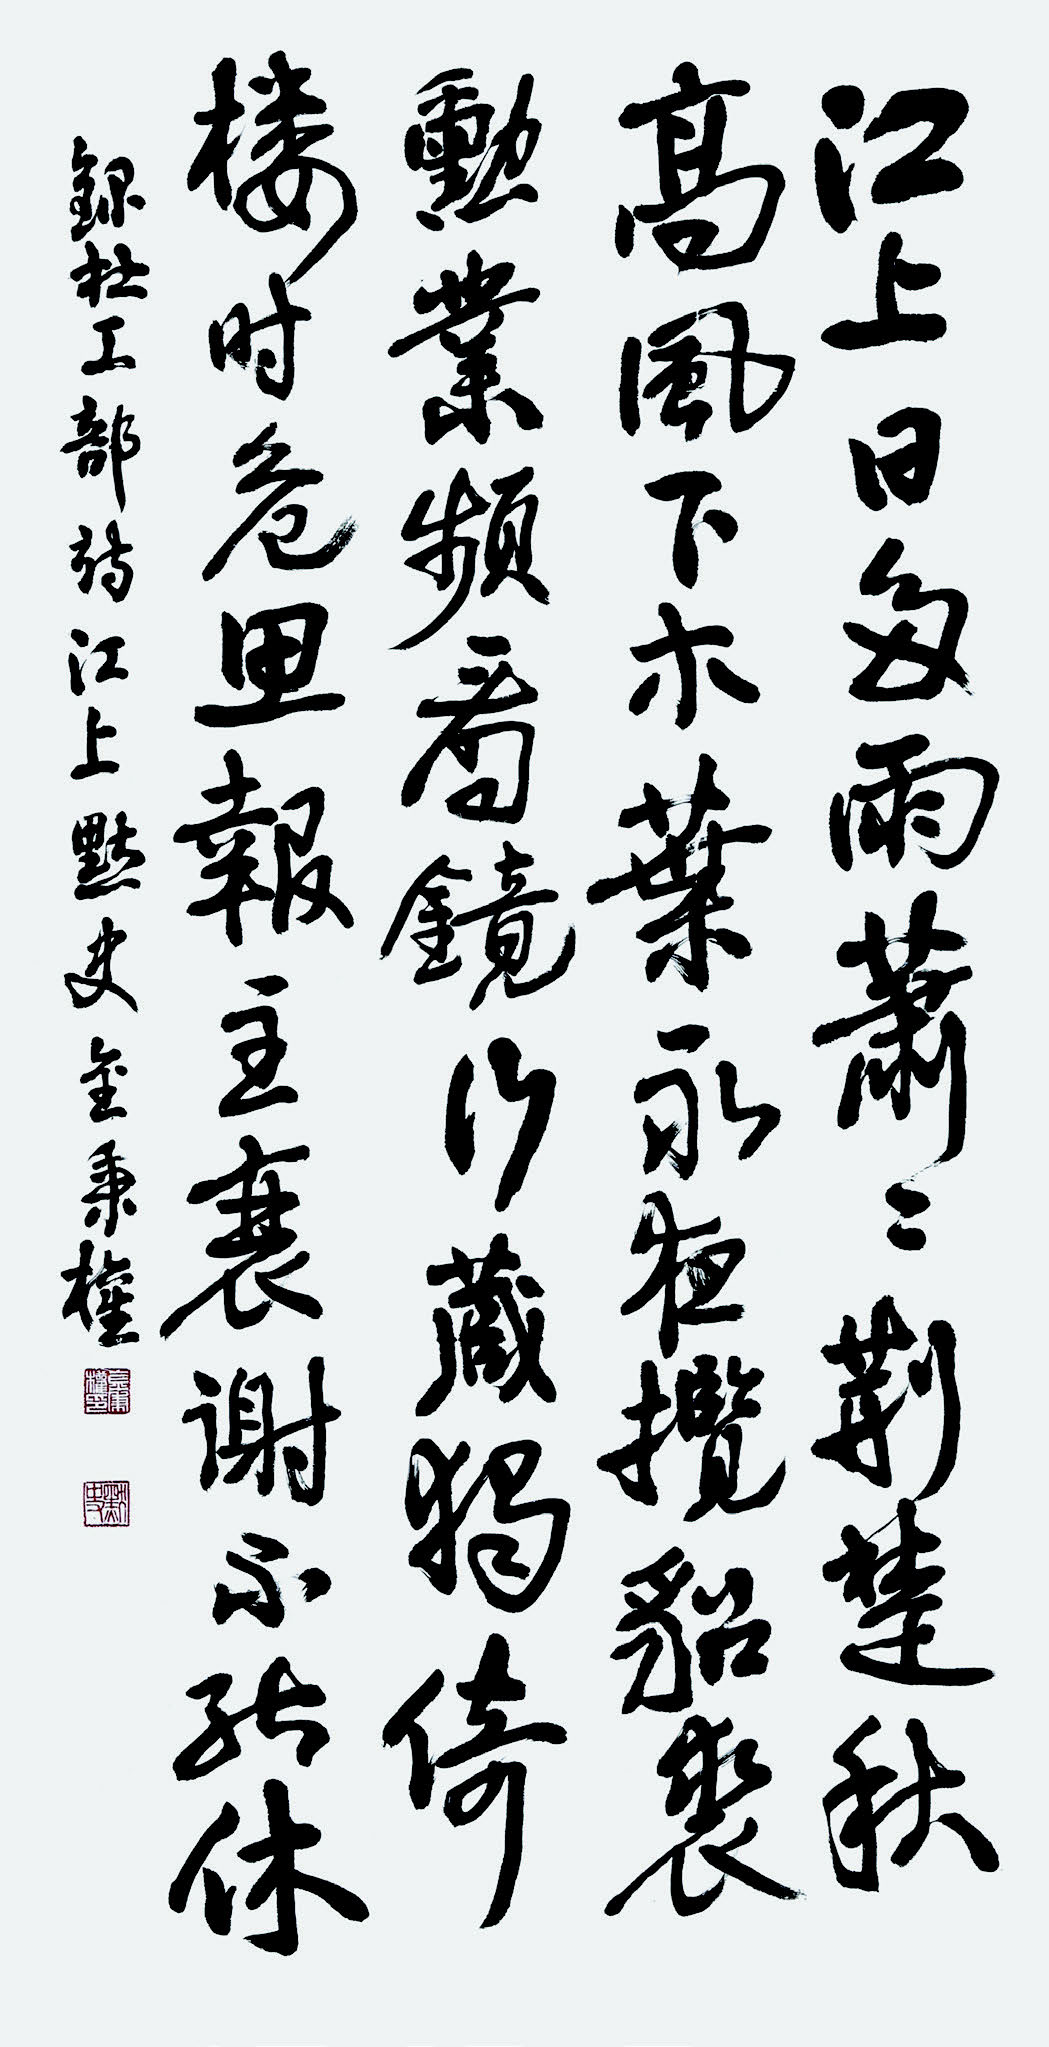 江上日多雨蕭〻荆楚秋
高風下木葉永夜攬貂裘
勳業頻看鏡行藏獨倚
楼时危思報主衰謝不能休
録杜工部詩江上 黙史 金秉權